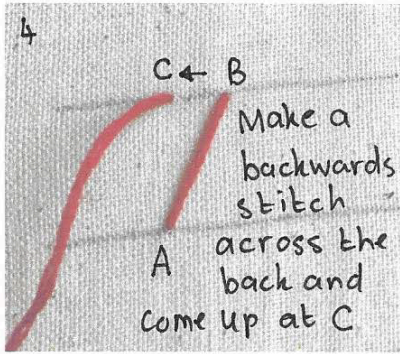 4
C ← B
Make a
backwards
stitch
A across the
back and
come up at C